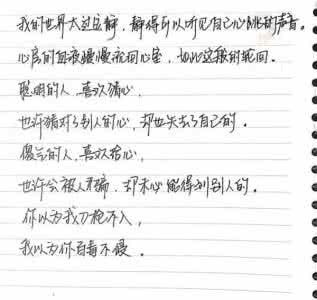 我们的世界太过安静，静得可以听见自己心跳的声音。
心房的血液慢慢流回心室，如此这般的轮回。
聪明的人，喜欢猜心，
也许猜对了别人的心，却也失去了自己的。
傻气的人，喜欢给心，
也许会被人骗，却未必能得到别人的。
你以为我刀枪不入，
我以为你百毒不侵。